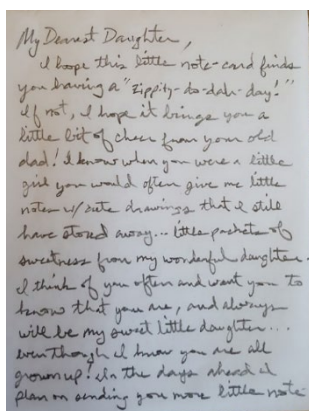 My Dearest Daughter,
I hope this little note-card finds
you having a "zippity-do-dah-day!"
If not, I hope it brings you a
little bit of cheer from your old
dad! I know when you were a little
girl you would often give me little
notes w/cute drawings that I still
have stored away... little packets of
sweetness from my wonderful daughter.
I think of you often and want you to
know that you are, and always
will be my sweet little daughter...
even though I know you are all
grown up! In the days ahead I
plan on sending you more little note